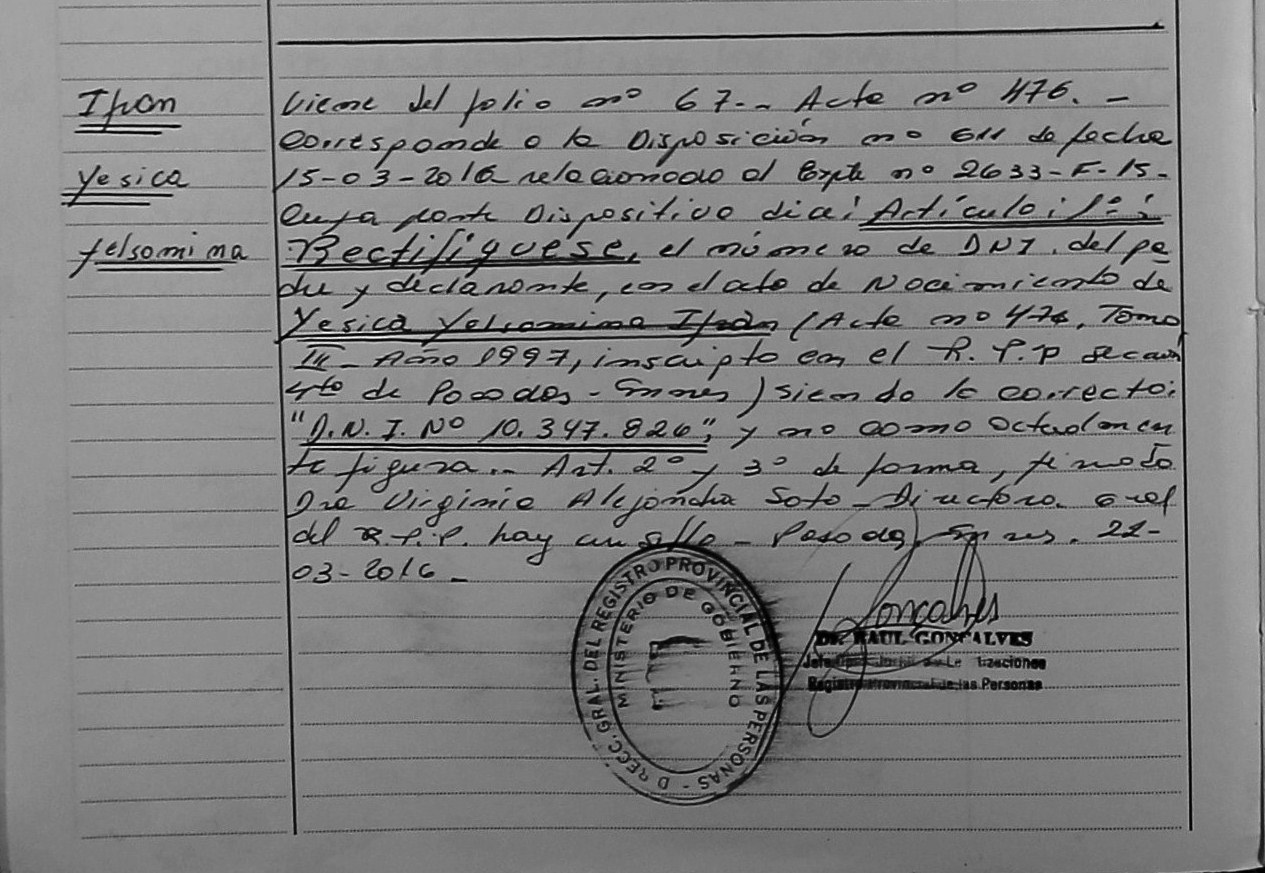 Ifran
Yesica
Yelsomina
Viene del folio nº 67.- Acta nº 476. -
Corresponde a la Disposición nº 611 de fecha
15-03-2016 relacionado al Expte nº 2633-F-15-
Cuya parte Dispositiva dice: Artículo: 1º:
Rectifíquese, el número de DNI. del pa
dre y declarante, en el acta de Nacimiento de
Yesica Yelsomina Ifrán (Acta nº 476, Tomo
III - Año 1997, inscripto en el R.P.P secain
4to de Posadas - Mnes) siendo lo correcto:
"D.N.I. Nº 10.347.826", y no como actualmen
te figura.- Art. 2º y 3º de forma, firmado
Dra Virginia Alejandra Soto - Directora Gral
del R.P.P. hay un sello - Posadas, Mnes. 22-
03-2016 -
D RECC. GRAL. DEL REGISTRO PROVINCIAL DE LAS PERSONAS -
MINISTERIO DE GOBIERNO
Goncalves
Dr. RAUL GONCALVES
Registro Provincial de las Personas